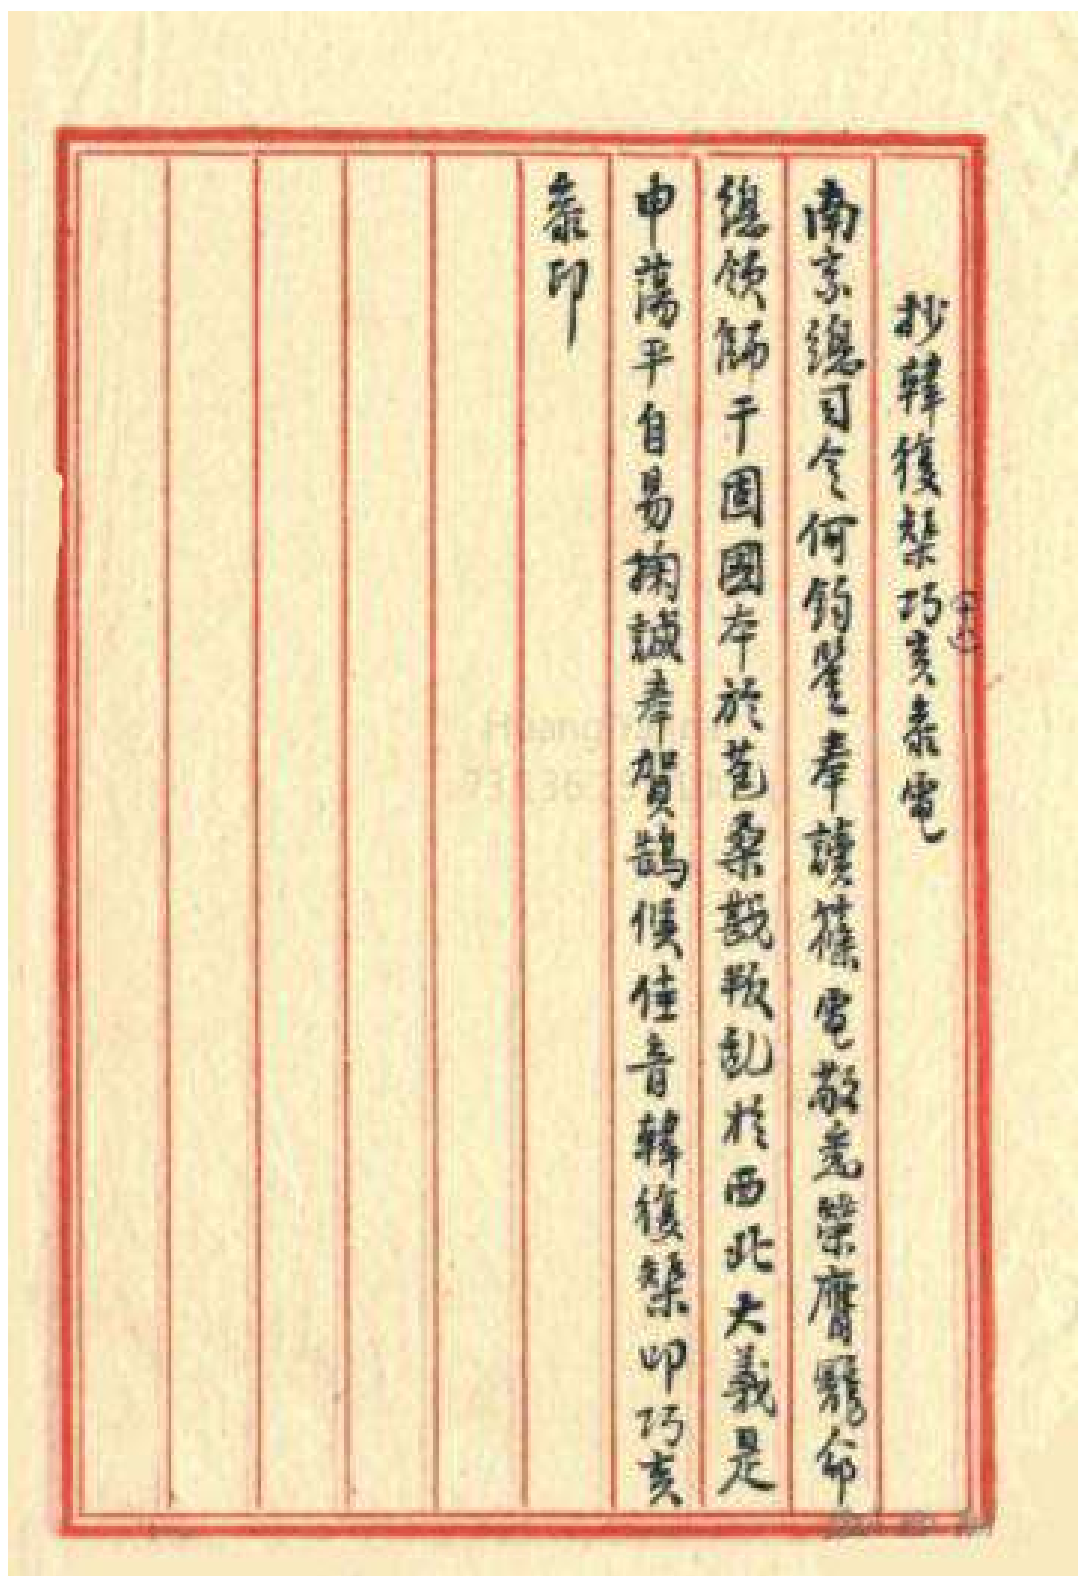 抄韓復榘巧亥泰電
南京總司令何鈞鑒奉讀篠電敬悉榮膺寵命
總領師干固國本於苞桑戡叛乱於西北大義是
申蕩平自易掬誠奉賀鵠候佳音韓復榘叩巧亥
泰印